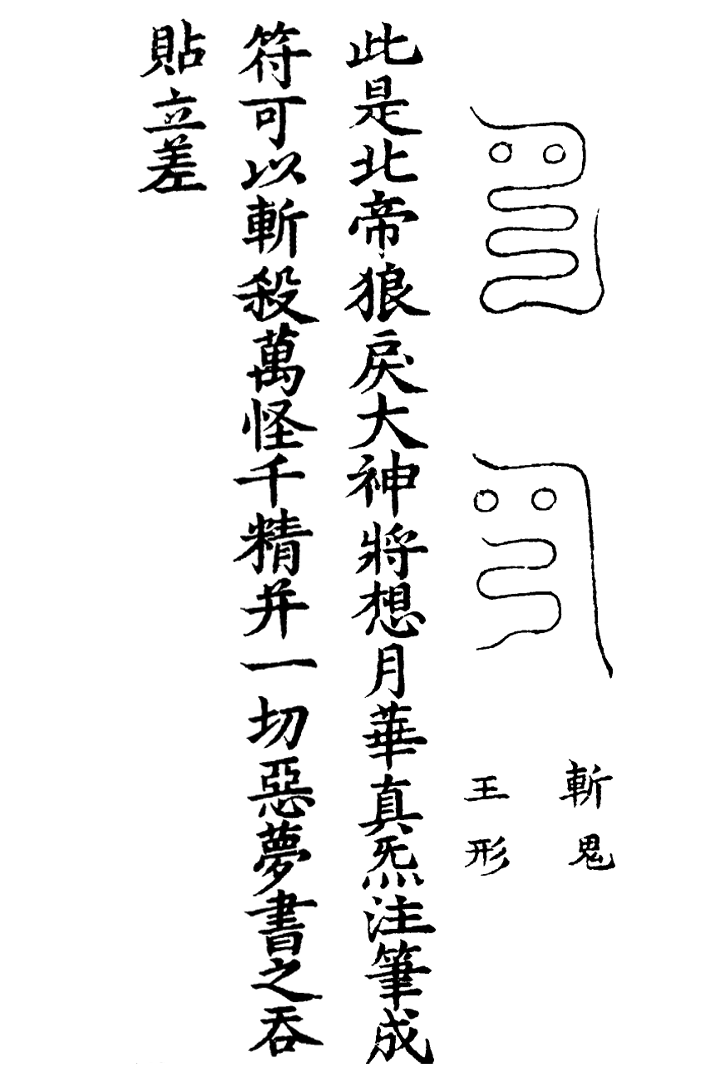 斬鬼
王形
此是北帝狼戾大神將想月華真炁注筆成
符可以斬殺萬怪千精并一切惡夢書之吞
貼立差